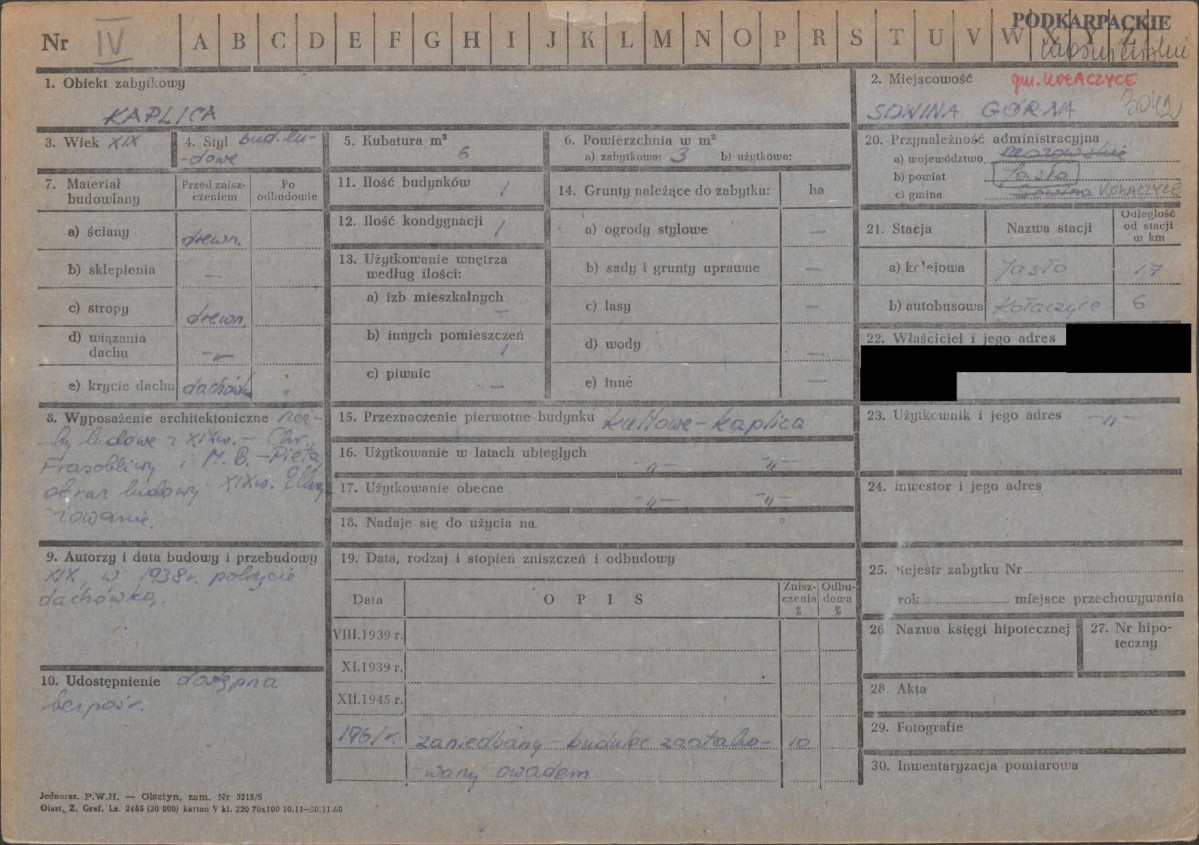 Nr IV A B C D E F G H I J K L M N O P R S T U V W X Y Z
PODKARPACKIE
1. Obiekt zabytkowy
KAPLICA
2. Miejscowość gm. KOŁACZYCE
SOWINA GÓRNA 3042
3. Wiek XIX
4. Styl bud. lu-
-dowe
5. Kubatura m³
6
6. Powierzchnia w m²
a) zabytkowa: 3 b) użytkowa:
20. Przynależność administracyjna
a) województwo
b) powiat Jasło
c) gmina Sowina KOŁACZYCE
7. Materiał budowlany
Przed znisz-
czeniem
Po
odbudowie
a) ściany drewn.
b) sklepienia —
c) stropy drewn.
d) wiązania
dachu -„-
e) krycie dachu dachówk
11. Ilość budynków 1
12. Ilość kondygnacji 1
13. Użytkowanie wnętrza
według ilości:
a) izb mieszkalnych —
b) innych pomieszczeń 1
c) piwnic —
14. Grunty należące do zabytku: ha
a) ogrody stylowe —
b) sady i grunty uprawne —
c) lasy —
d) wody —
e) inne —
21. Stacja Nazwa stacji Odległość
od stacji
w km
a) kolejowa Jasło 17
b) autobusowa Kołaczyce 6
22. Właściciel i jego adres
23. Użytkownik i jego adres -„-
24. Inwestor i jego adres
25. Rejestr zabytku Nr
rok miejsce przechowywania
26 Nazwa księgi hipotecznej
27. Nr hipo-
teczny
28. Akta
29. Fotografie
30. Inwentaryzacja pomiarowa
8. Wyposażenie architektoniczne rzeź-
by ludowe z XIXw. – Chr.
Frasobliwy i M.B. – Pieta
obraz ludowy XIXw.
9. Autorzy i data budowy i przebudowy
XIX, w 1938r. pokrycie
dachówką.
10. Udostępnienie dostępna
bezpośr.
15. Przeznaczenie pierwotne budynku kultowe – kaplica
16. Użytkowanie w latach ubiegłych -„- -„-
17. Użytkowanie obecne -„- -„-
18. Nadaje się do użycia na
19. Data, rodzaj i stopień zniszczeń i odbudowy
Data OPIS Znisz-
czenia
% Odbu-
dowa
%
VIII.1939 r.
XI.1939 r.
XII.1945 r.
1961r. zaniedbany – budulec zaatako- 10
-wany owadem
Jednoraz. P.W.H. — Olsztyn, zam. Nr 3215/S
Olszt. Z. Graf. Lz. 2485 (30 000) karton V kl. 220 70x100 10.11—30.11.60